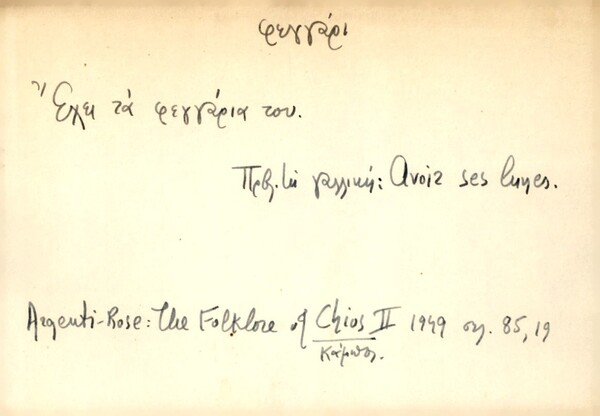 φεγγάρι
Ἔχει τά φεγγάρια του.
Πρβ. τή γαλλική: Avoir ses lunes.
Argenti-Rose: The Folklore of Chios II 1949 σελ. 85, 19
Κάμπος.